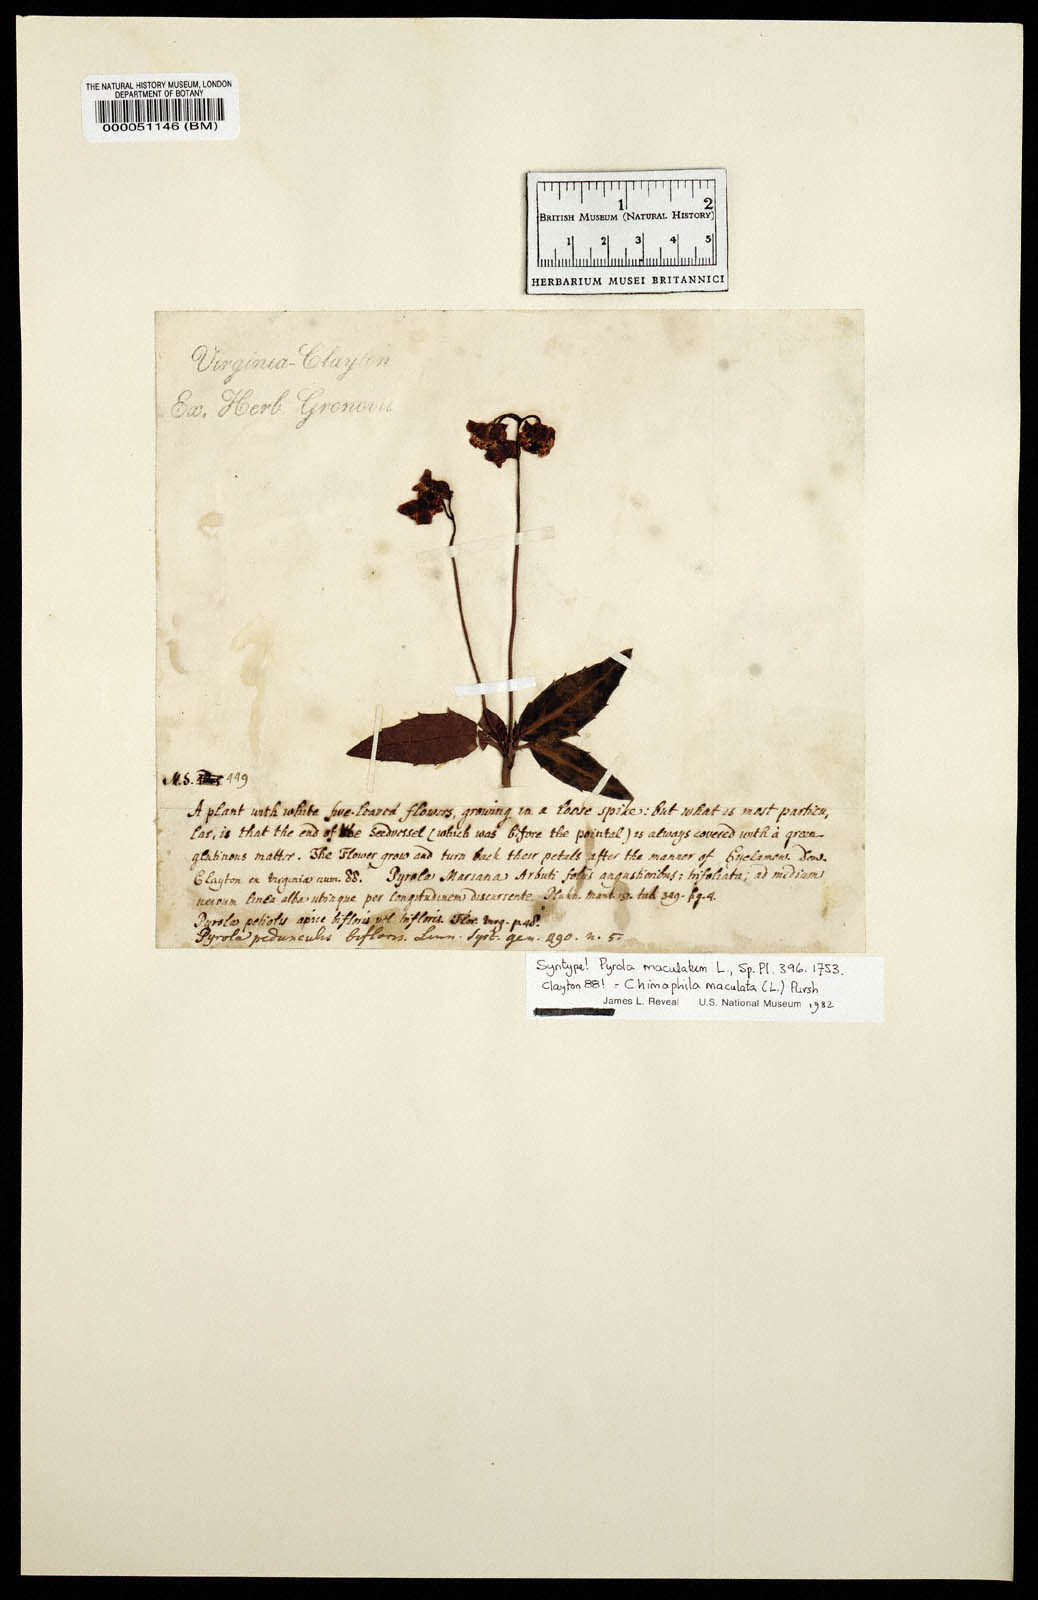 THE NATURAL HISTORY MUSEUM, LONDON
DEPARTMENT OF BOTANY
000051146 (BM)
1 2
BRITISH MUSEUM (NATURAL HISTORY)
1 2 3 4 5
HERBARIUM MUSEI BRITANNICI
Virginia - Clayton
Ex. Herb. Gronovii
M.S. 449
A plant with white five-leaved flowers, growing in a loose spike: but what is most particu,
lar, is that the end of the seedvessel (which was before the pointal) is always covered with a green
glutinous matter. The Flower grow and turn back their petals after the manner of Cyclamens.
Clayton ex Virginia num. 88. Pyrola Mariana Arbuti foliis angustioribus; trifoliata; ad medium
nervum linea alba utrinque per longitudinem discurrente. Pluk. mant. 157. tab. 349. fig. 4.
Pyrola petiolis apice bifloris vel trifloris. Flor. Virg. p. 48.
Pyrola pedunculis bifloris. Linn. Syst. gen. 490. n. 5.
Syntype! Pyrola maculatum L., Sp. Pl. 396. 1753.
Clayton 88! = Chimaphila maculata (L.) Pursh
James L. Reveal U.S. National Museum 1982